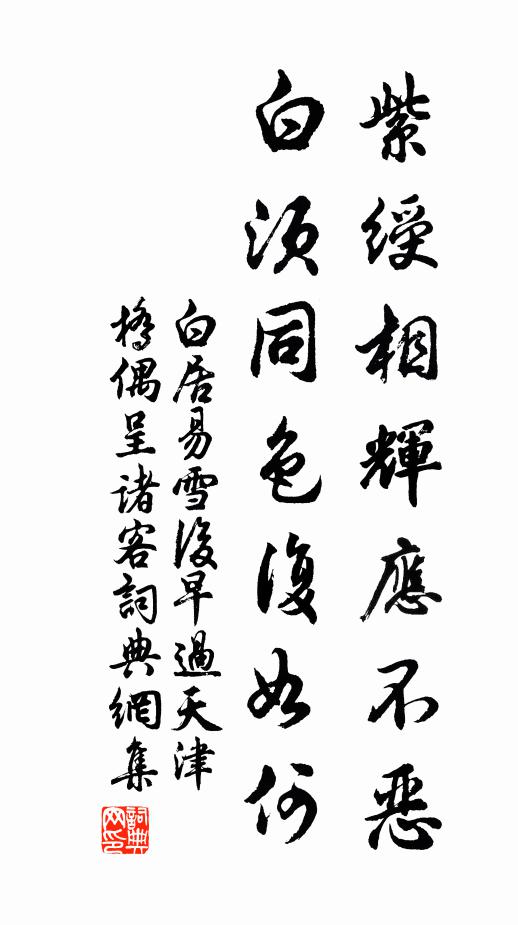 紫綬相輝應不惡
白須同色復如何
白居易雪後早過天津
橋偶呈諸客詞典網集
詞典
网印